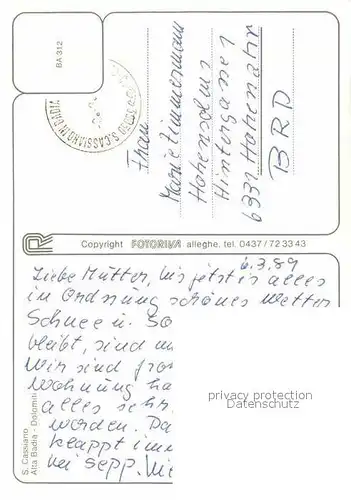 BA 312
S. CASSIANO IN BADIA
Frau
Marie Zimmermann
Hohensolms
Hintergasse 1
6331 Hohenahr
BRD
Copyright FOTORIVA alleghe. tel. 0437 / 72 33 43
6.3.89
Liebe Mutter, bis jetzt is alles
in Ordnung schönes Wetter
Schnee u. So
bleibt, sind
Wir sind
Wohnung ha
alles
werden. Da
klappt imm
bei Sepp.
S. Cassiano
Alta Badia - Dolomiti
privacy protection
Datenschutz